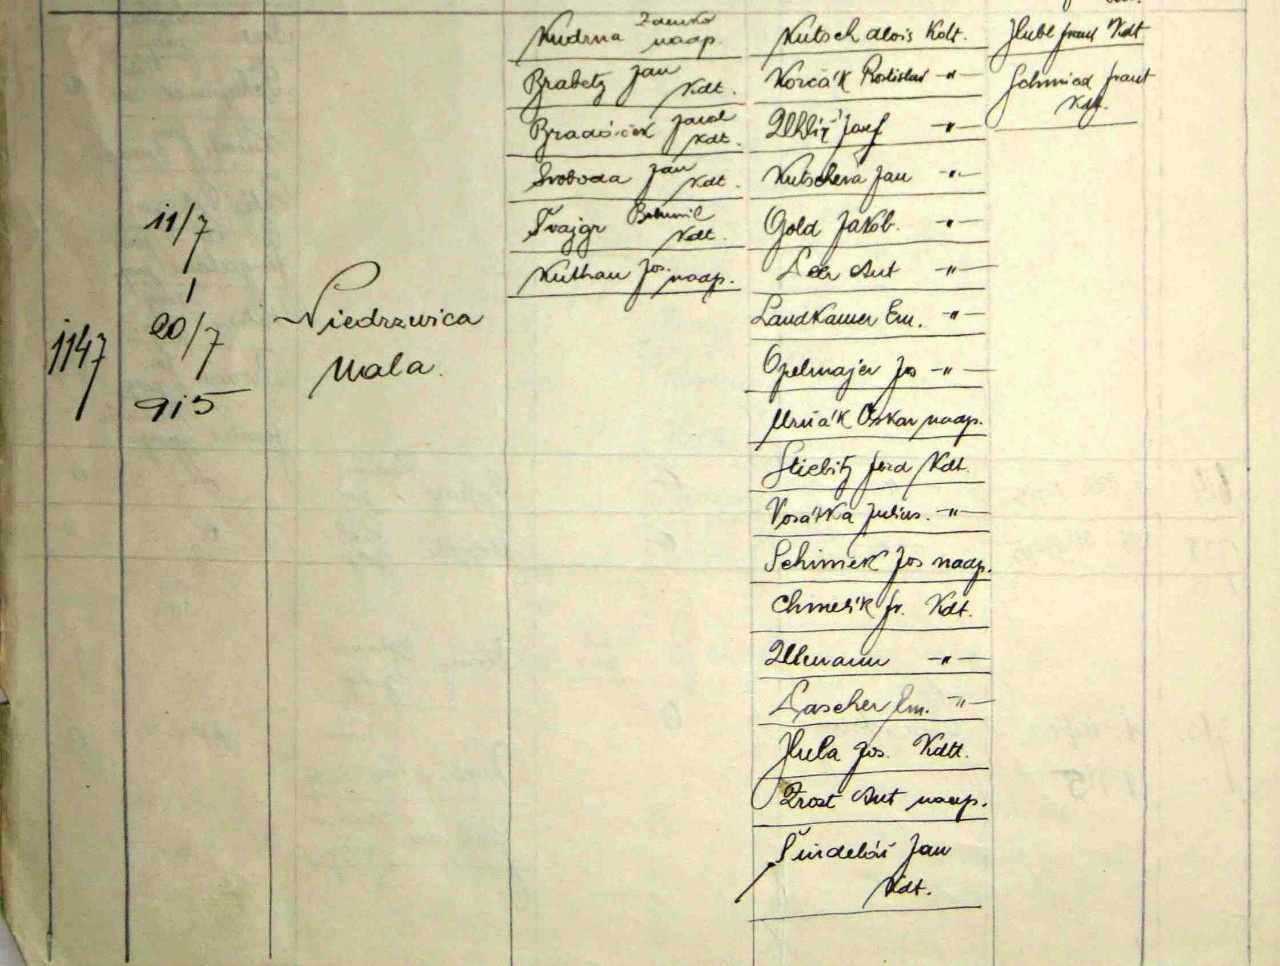 1147
11/7
20/7
915
Niedrzwica
Mala.
Kudrna Zdenko
naap.
Brabetz Jan
Kdt.
Jarol
Kdt.
Svoboda Jan
Kdt.
Švajgr Bohumil
Kdt.
Kuthan Jos. naap.
Kutsch Alois Kdt.
Korčák Rostislav -"-
Uhliř Josef -"-
Kutschera Jan -"-
Gold Jakob. -"-
Leer Ant -"-
Landkamer Em. -"-
Opelmajer Jos -"-
Mrňák Oskar naap.
Stiebitz Ferd Kdt.
Vosátka Julius. -"-
Schimek Jos naap.
Chmelík Fr. Kdt.
Ullmann -"-
Lascher Em. -"-
Hula Jos. Kdtt.
Zrost Ant naap.
Šindelář Jan
Kdt.
Hubl Frant Kdt
Schmied Frant
Kdt.